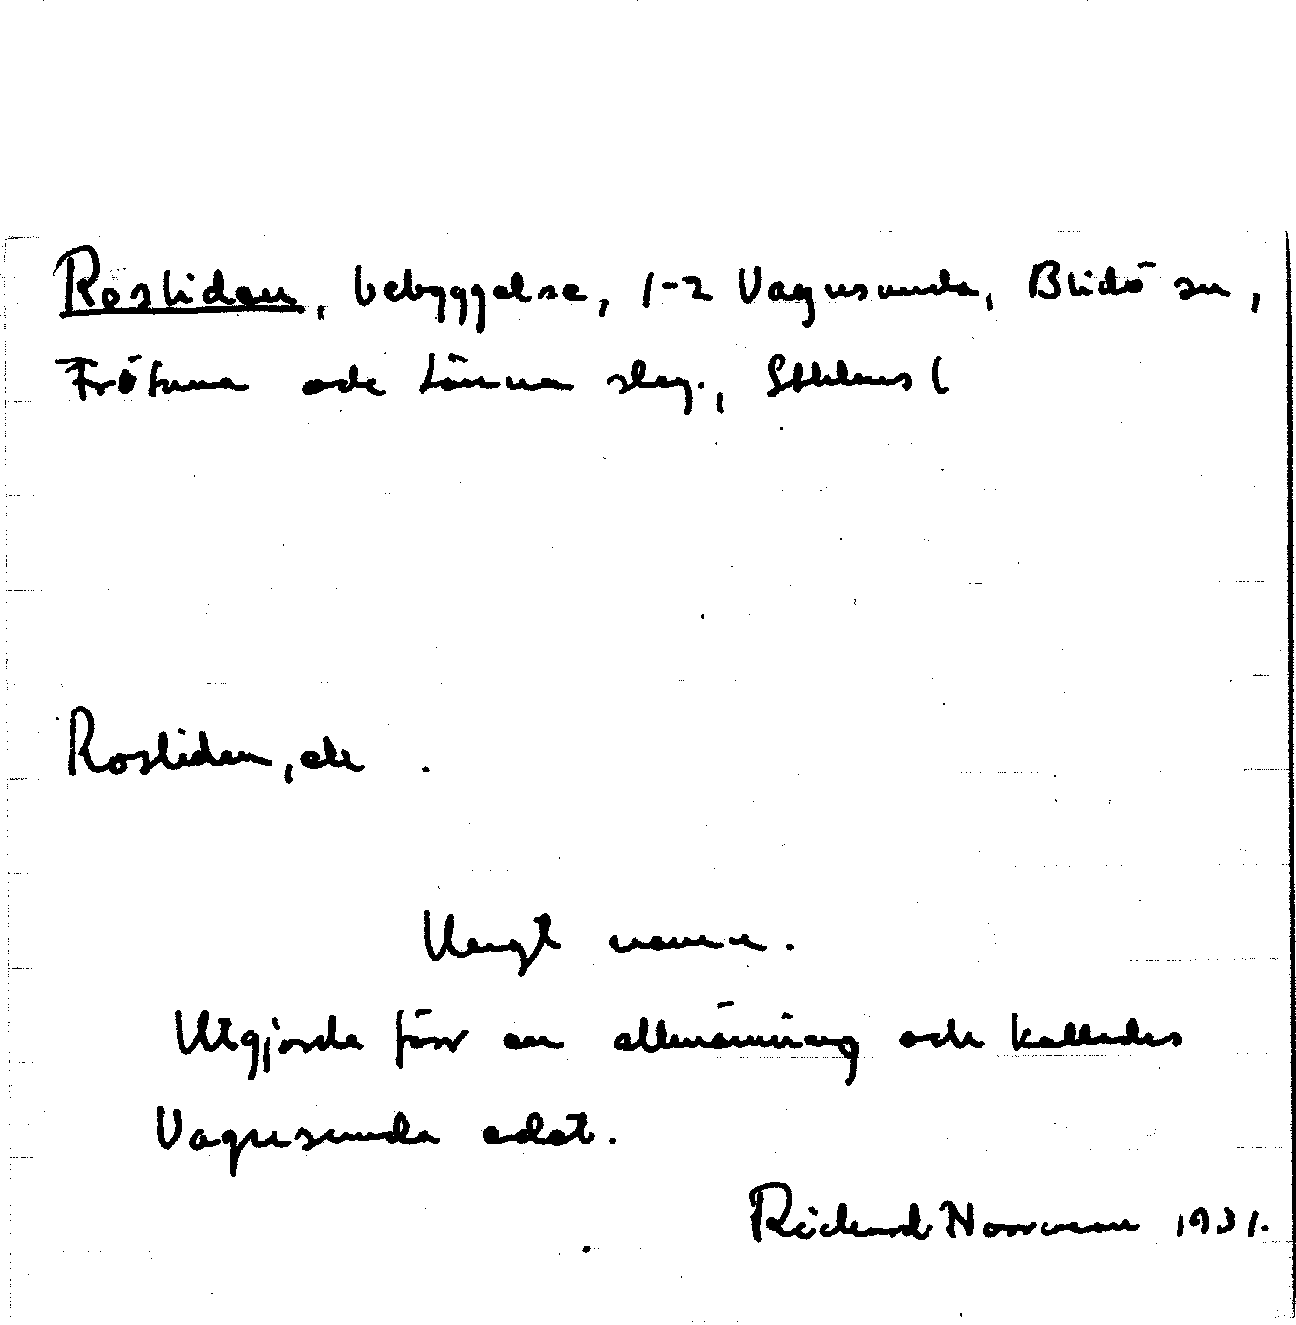 Rosliden, bebyggelse, 1-2 Vagnsunda, Blidö sn,
Frötuna och Länna slg., Sthlms l
Rosliden, etc
Ungt namn.
Utgjorde förr en allmänning och kallades
Vagnsunda edet.
Rickard Norrman 1931.